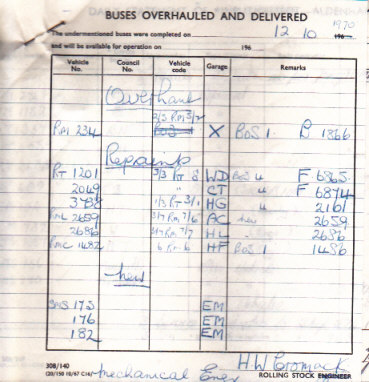 BUSES OVERHAULED AND DELIVERED
The undermentioned buses were completed on 12 10 1970 196
and will be available for operation on 196
Vehicle No. Council No. Vehicle code Garage Remarks
Overhaul
2/3 RM 3/
RM 234 X BOS 1. L 1866
Repaints
RT 1201 3/3 RT 8 WD BOS 4 F 6865
2049 " CT " F 6874
HG " 2161
RML 2659 3/7 RM 7/6 AC new 2659
2686 RM 7/7 HL 2686
RMC 1482 6 RM 6 HF BOS 1 1456
New
SMS 173 EM
176 EM
182 EM
308/140
(20/150 10/67 C14) Mechanical Eng H W Cromack
ROLLING STOCK ENGINEER